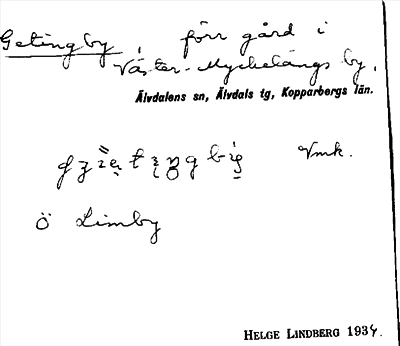 Getingby förr gård i
Väster-Myckelängs by.
Älvdalens sn, Älvdals tg, Kopparbergs län.
Vmk.
Ö Limby
HELGE LINDBERG 1934.